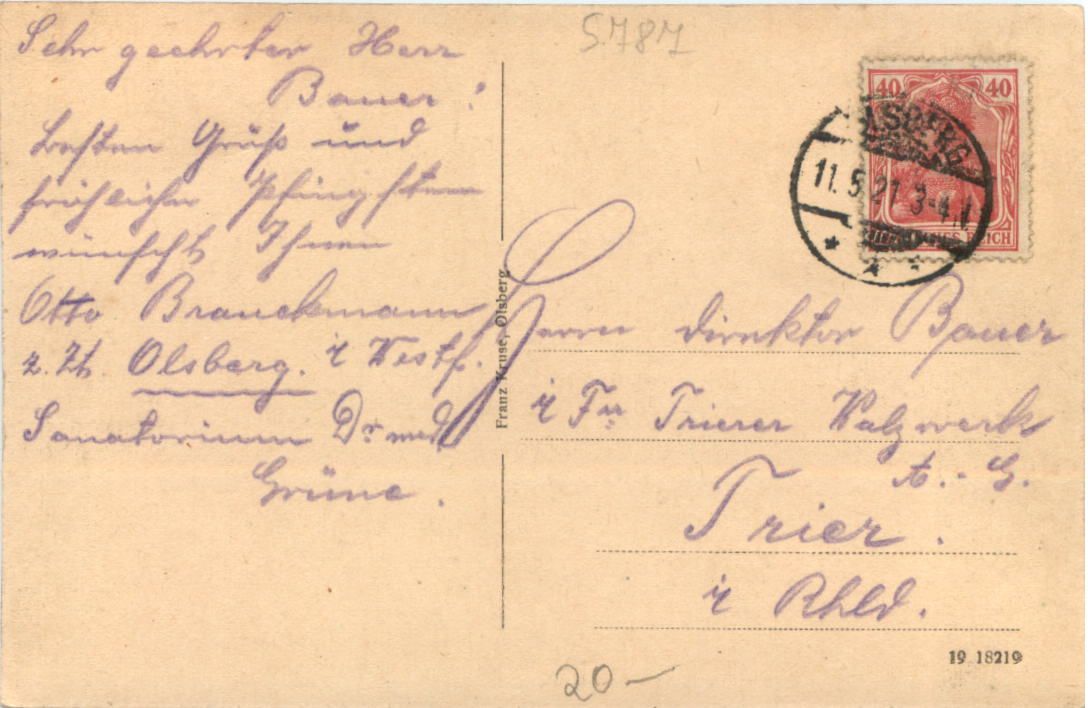 S.787
Sehr geehrter Herr
Bauer!
Besten Gruß und
fröhliche Pfingsten
wünscht Ihnen
Otto Brauckmann
z. Zt. Olsberg. i Westf.
Sanatorium Dr med
Grüne.
Franz Kruse, Olsberg
40 40
OLSBERG
11.5.21 3-4 N
REICH
Herrn Direktor Bauer
i Fa Trierer Walzwerk
A.-G.
Trier.
i Rhld.
19 18219
20 –